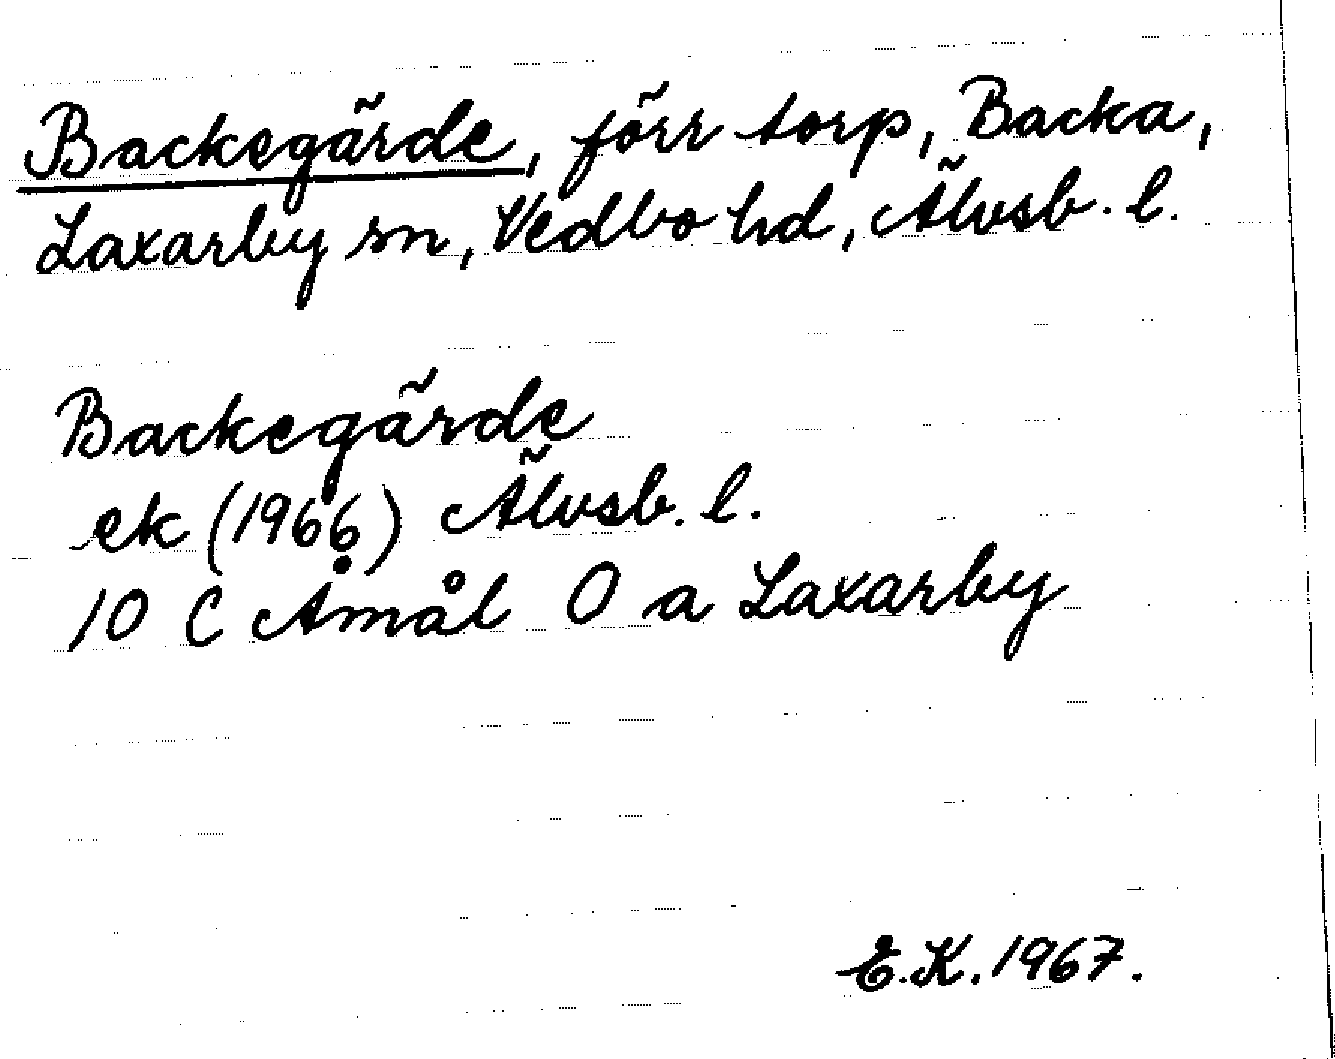 Backegärde, förr torp, Backa,
Laxarby sn, Vedbo hd, Älvsb. l.
Backegärde
ek (1966) Älvsb. l.
10 C Åmål O a Laxarby
E.K. 1967.